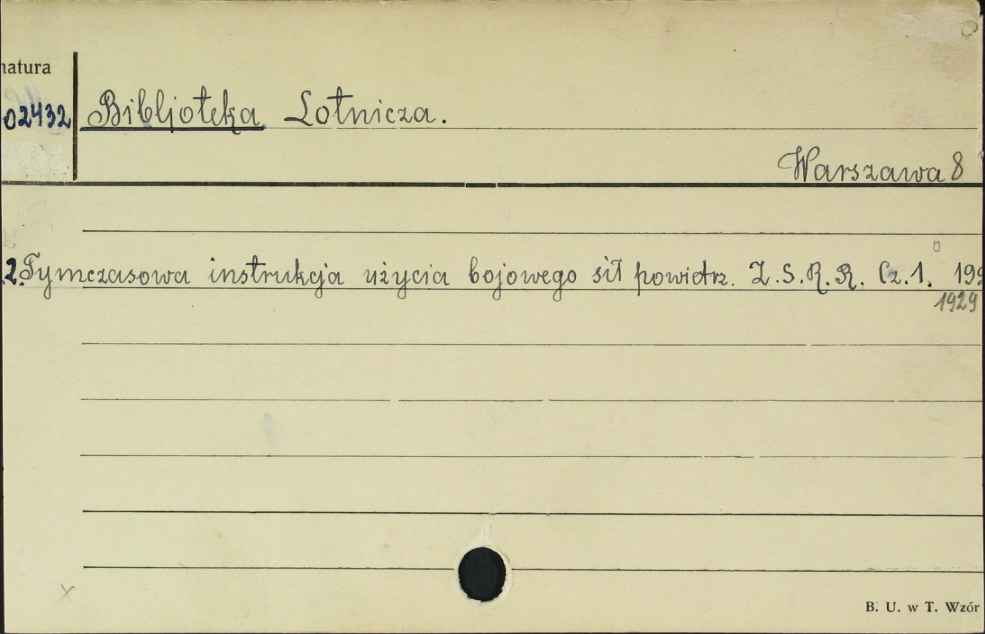 natura
02432 Bibljoteka Lotnicza.
Warszawa 8
2. Tymczasowa instrukcja użycia bojowego sił powietrz. Z.S.R.R. Cz.1. 192
1929
B. U. w T. Wzór